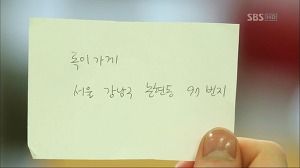 SBS HD
혹이 가게
서울 강남구 논현동 97 번지